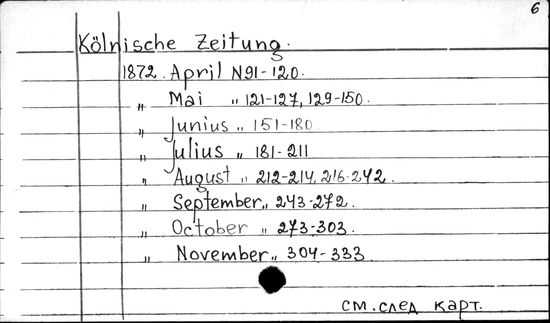 6
Kölnische Zeitung.
1872. April N 91-120.
„ Mai „ 121-127, 129-150.
„ Junius „ 151-180.
„ Julius „ 181-211
„ August „ 212-214, 216-242.
„ September „ 243-272.
„ October „ 273-303.
„ November „ 304-333.
см. след карт.